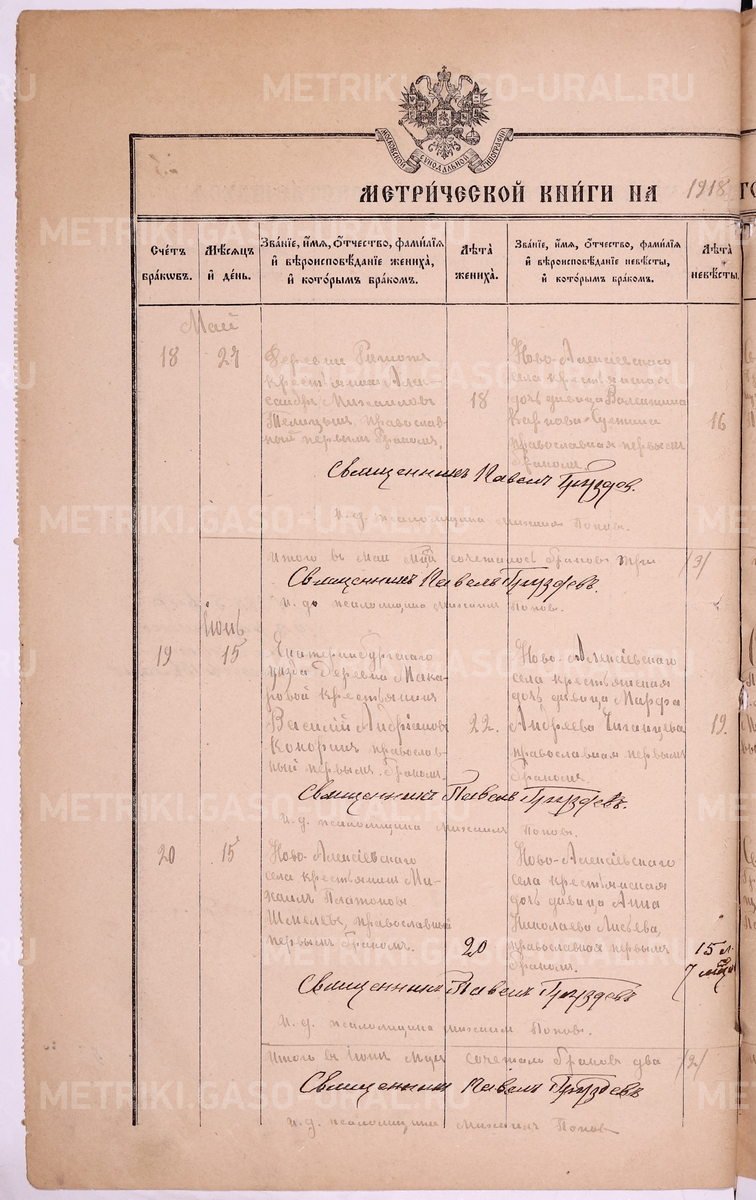 METRIKI.GASO-URAL.RU
МОСКОВСКОЙ СѴНОДАЛЬНОЙ ТИПОГРАФІИ
МЕТРИ́ЧЕСКОЙ КНИ́ГИ НА 1918 ГО
Сче́тъ бра́кѡвъ.
Мѣ́сяцъ и҆ де́нь.
Зва́нїе, и҆́мѧ, ѻ҆́тчество, фами́лїѧ и҆ вѣроисповѣ́данїе жениха̀, и҆ кото́рымъ бра́комъ.
Лѣ́та жениха̀.
Зва́нїе, и҆́мѧ, ѻ҆́тчество, фами́лїѧ и҆ вѣроисповѣ́данїе невѣ́сты, и҆ кото́рымъ бра́комъ.
Лѣ́та невѣ́сты.
Май
18
27
Деревни
крестьянинъ Алек-
сандръ Михаиловъ
православ-
ный первымъ бракомъ,
18
Ново-Алексіевскаго
села крестьянская
дочь дѣвица Валентина
Карпова
православная первымъ
бракомъ.
16
Священникъ Павелъ Груздевъ.
И. д. псаломщика Михаилъ Поповъ.
Итого въ маи мцѣ сочеталось браковъ три /3/
Священникъ Павелъ Груздевъ.
И. д. псаломщика Михаилъ Поповъ.
Іюнь
19
15
Екатеринбургскаго
уѣзда деревни Мака-
ровой крестьянинъ
Василій Андріановъ
православ-
ный первымъ бракомъ.
22.
Ново-Алексіевскаго
села крестьянская
дочь дѣвица Марфа
Андреева
православная первымъ
бракомъ.
19.
Священникъ Павелъ Груздевъ.
И. д. псаломщика Михаилъ Поповъ.
20
15
Ново-Алексіевскаго
села крестьянинъ Ми-
хаилъ Платоновъ
Шмелевъ, православный
первымъ бракомъ.
20
Ново-Алексіевскаго
села крестьянская
дочь дѣвица Анна
Николаева
православная первымъ
бракомъ.
15 л.
7 мѣсц
Священникъ Павелъ Груздевъ
И. д. псаломщика Михаилъ Поповъ.
Итого въ Іюнѣ мцѣ сочетало браковъ два /2/
Священникъ Павелъ Груздевъ
И. д. псаломщика Михаилъ Поповъ